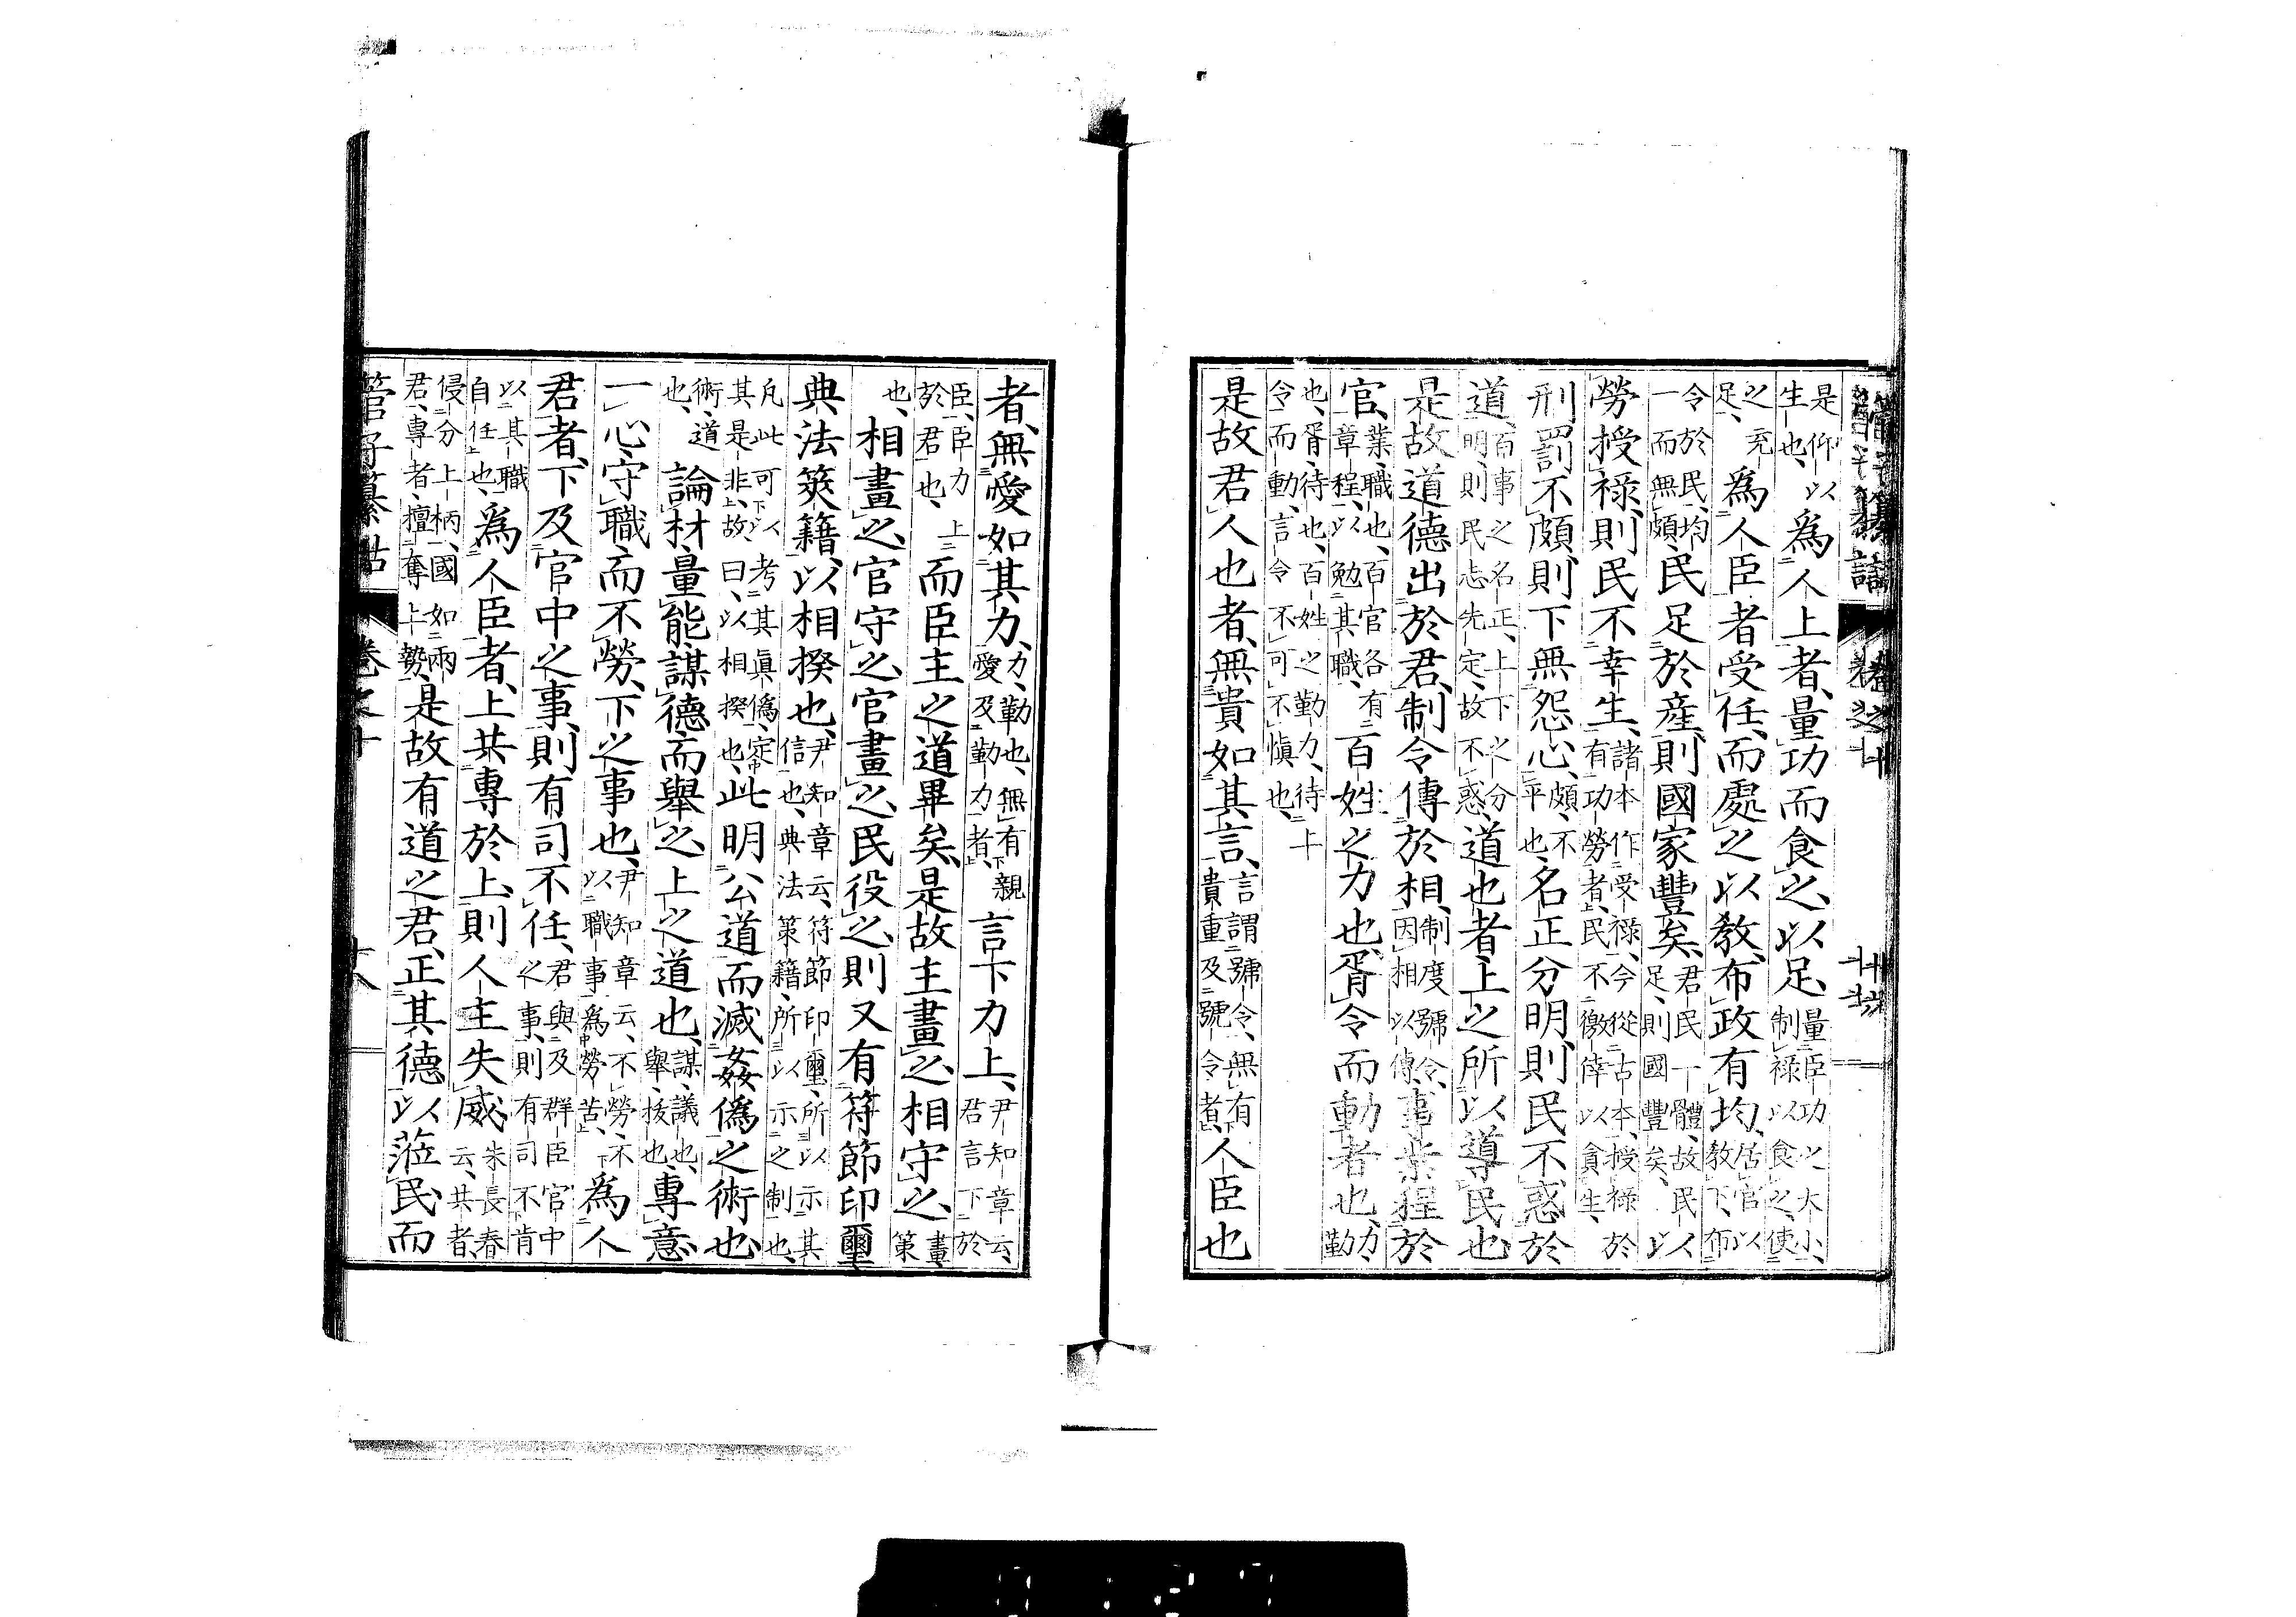 是仰以
生也、
爲人上者、量功而食之、以足、
量臣功之大小、
制祿以食之、使
之充
足、
爲人臣者受任、而處之以敎、布政有均、
居官以
敎下、布
令於民、均
一而無頗、
民足於產、則國家豐矣、
君民一體、故民
足、則國豐矣、以
勞授祿、則民不幸生、
諸本作受祿、今從古本、授祿於
有功勞者、民不徼倖以貪生、
刑罰不頗、則下無怨心、
頗、不
平也、
名正分明、則民不惑於
道、
百事之名正、上下之分
明、則民志先定、故不惑、
道也者、上之所以導民也、
是故道德出於君、制令傳於相、
制度號令、
因相以傳、
事業程於
官、
業、職也、百官各有
章程、以勉其職、
百姓之力也、胥令而動者也、
力、
勤
也、胥、待也、百姓之勤力、待上
令而動、言令不可不愼也、
是故君人也者、無貴如其言、
言謂號令、無有
貴重及號令者、
人臣也
管子纂詁 卷之十
者、無愛如其力、
力、勤也、無有親
愛及勤力者、
言下力上、
尹知章云、
君言下於
臣、臣力上
於君也、
而臣主之道畢矣、是故主畫之、相守之、
畫、
策
也、
相畫之、官守之、官畫之、民役之、則又有符節印璽
典法筴籍、以相揆也、
尹知章云、符節印璽、所以示其
信也、典法策籍、所以示之制也、
凡此可以考其眞僞、定
其是非、故曰、以相揆也、
此明公道而滅姦僞之術也、
術、道
也、
論材、量能、謀德而舉之、上之道也、
謀、議也、
舉、拔也、
專意
一心、守職而不勞、下之事也、
尹知章云、不勞、不
以職事爲勞苦、
爲人
君者、下及官中之事、則有司不任、
君與及群臣官中
之事、則有司不肯
以其職
自任也、
爲人臣者、上共專於上、則人主失威、
朱長春
云、共者、
侵分上柄、國如兩
君、專者、擅奪上勢、
是故有道之君、正其德以蒞民、而
管子纂詁 卷之十